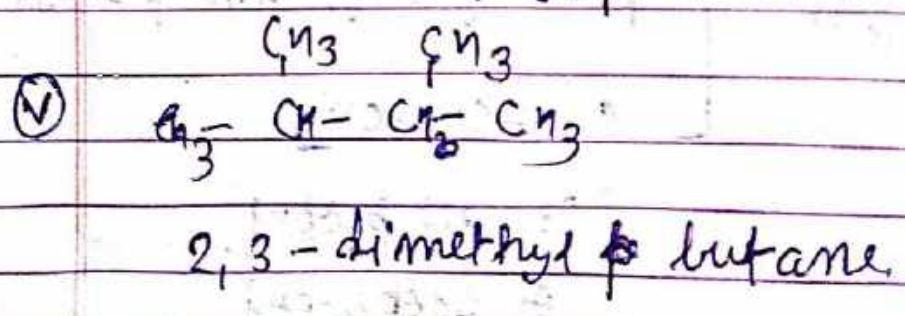 CH3 CH3
(V) CH3 - CH - CH - CH3
2,3 - dimethyl butane